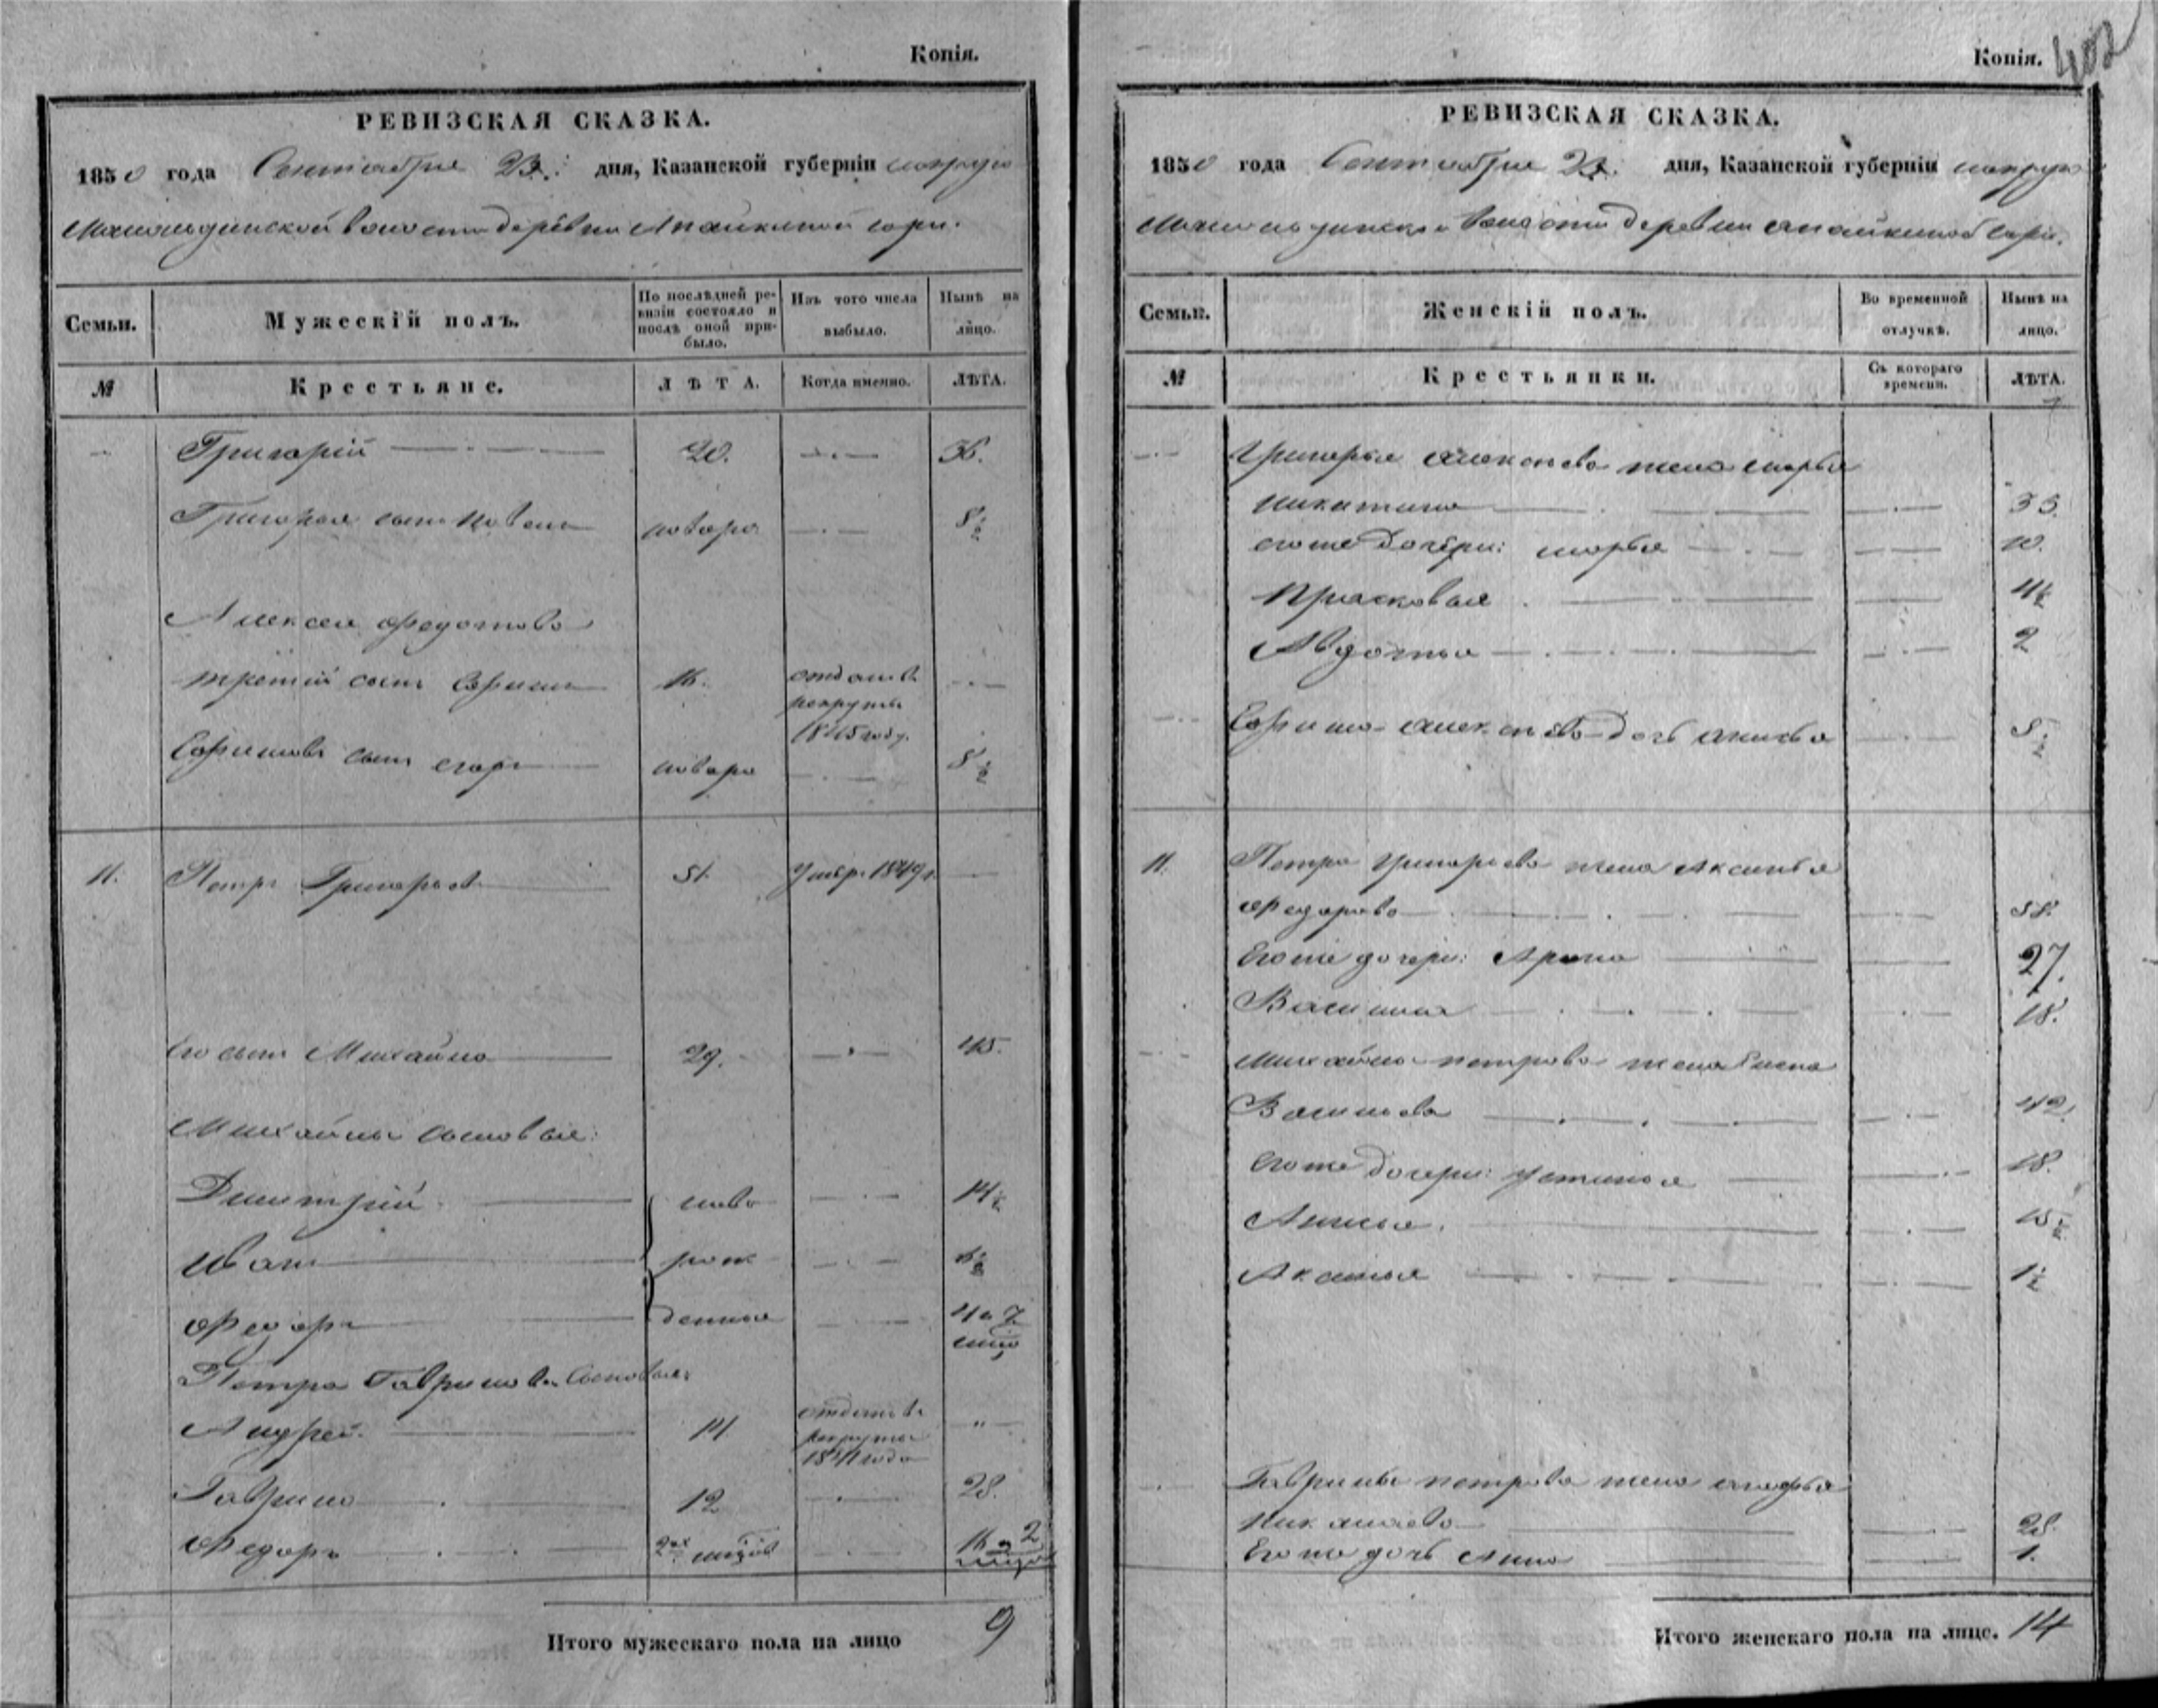 Копія.
РЕВИЗСКАЯ СКАЗКА.
1850 года Сентября 23. дня, Казанской губерніи
волости деревни Апайкиной гари.
Семьи.
Мужескій полъ.
По послѣдней ре-
визіи состояло и
послѣ оной при-
было.
Изъ того числа
выбыло.
Нынѣ на
лицо.
№
Крестьяне.
ЛѢТА.
Когда именно.
ЛѢТА.
Григорій 20. 36.
Григорья сынъ новоро 8½
Алексея Федотова
третій сынъ Ефимъ 16. отданъ въ
рекруты
1845 году.
Ефимовъ сынъ Егоръ новоро 8½
11. Петръ Григорьевъ 51. умеръ 1849 г.
Его сынъ Михайло 29. 45.
Михайлы сыновья:
Димитрій ново 14½
Иванъ рож 6½
Федоръ денные 4 и 7
Петра Гаврилова сыновья:
Андрей. 14 отданъ въ
рекруты
1841 года
Гаврило 12 28.
Федоръ 2х 16 и 2
Итого мужескаго пола на лицо 9
Копія. 402
РЕВИЗСКАЯ СКАЗКА.
1850 года Сентября 23. дня, Казанской губерніи
волости деревни Апайкиной гари.
Семьи.
Женскій полъ.
Во временной
отлучкѣ.
Нынѣ на
лицо.
№
Крестьянки.
Съ котораго
времени.
ЛѢТА.
Григорья Алексеева жена Марья
Никитина 35.
его же дочери: Марья 10.
Прасковья 4½
Авдотья 2
Ефима Алексеева дочь 8½
11. Петра Григорьева жена Аксинья
Федорова 58.
Его же дочери: Арина 27.
18.
Михайлы Петрова жена Елена
Васильева 42.
Его же дочери: Устинья 18.
15½
Аксинья 1½
Гаврилы Петрова жена Агафья
Николаева 28.
Его же дочь Анна 1.
Итого женскаго пола на лицо. 14